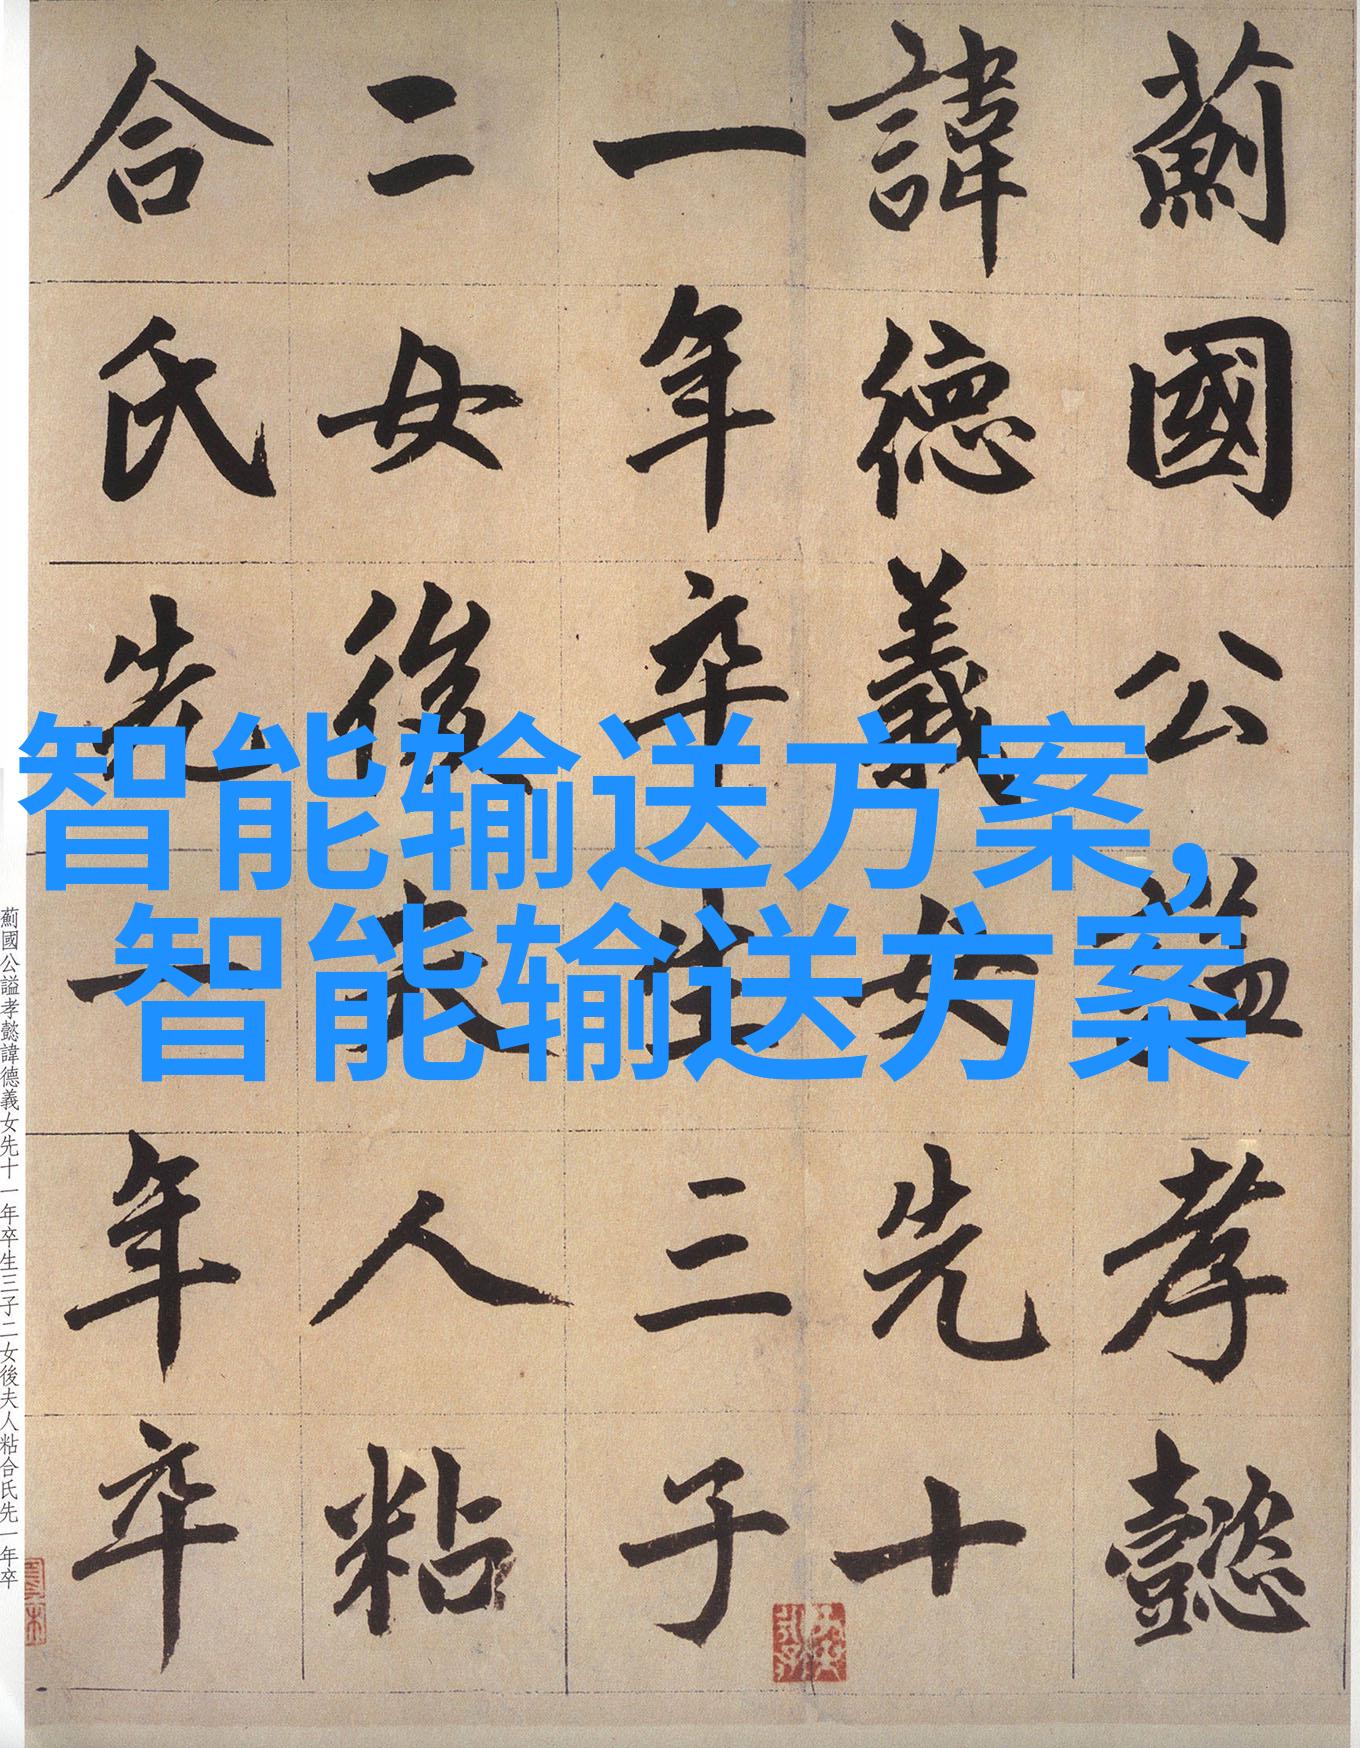 薊國公謚孝懿
諱德義女先十
一年卒生三子
二女後夫人粘
合氏先一年卒
智能输送方案,
智能输送方案
薊國公謚孝懿諱德義女先十一年卒生三子二女後夫人粘合氏先一年卒